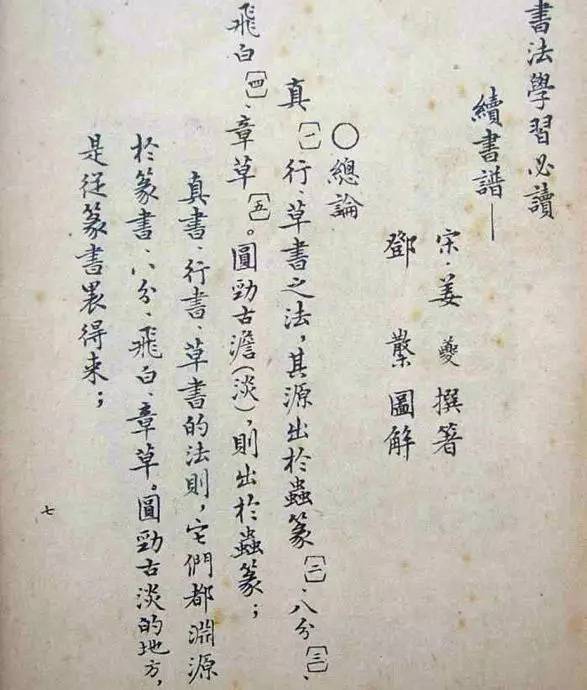 書法學習必讀
續書譜—
宋·姜夔撰著
鄧縏圖解
○總論
真〔一〕、行、草書之法，其源出於蟲篆〔二〕、八分〔三〕、
飛白〔四〕、章草〔五〕。圓勁古澹(淡)，則出於蟲篆；
真書、行書、草書的法則，它們都淵源
於篆書、八分、飛白、章草。圓勁古淡的地方，
是從篆書裏得來；
七